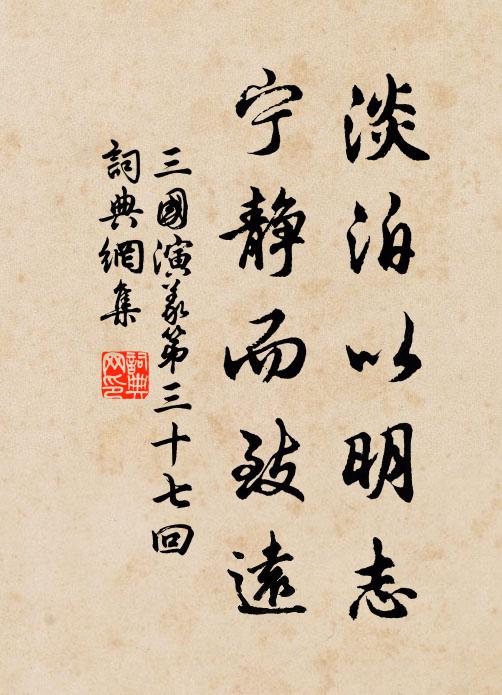 淡泊以明志
宁静而致遠
三國演義第三十七回
詞典網集
詞典网印